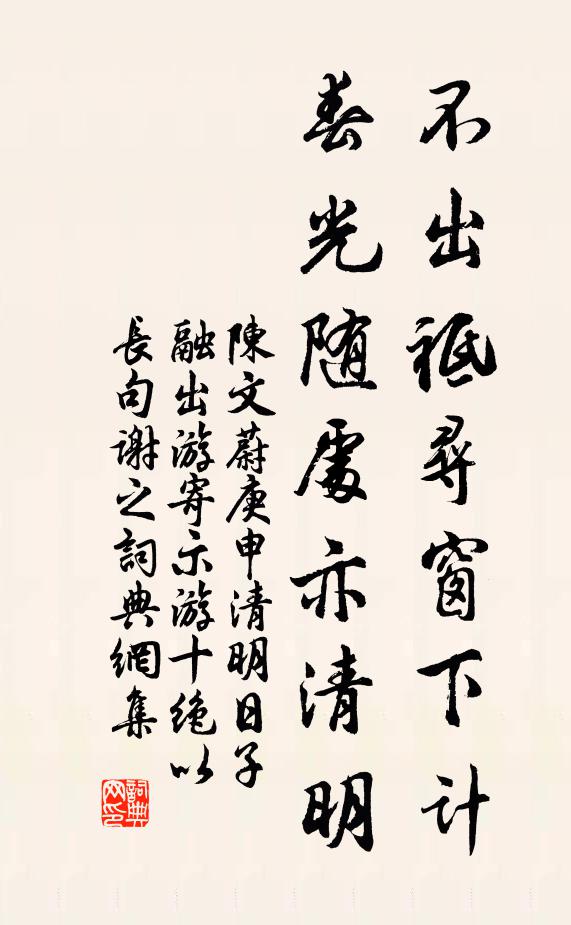 不出祗尋窗下计
春光随處亦清明
陳文蔚庚申清明日子
融出游寄示游十绝以
長句谢之詞典網集
詞典网印